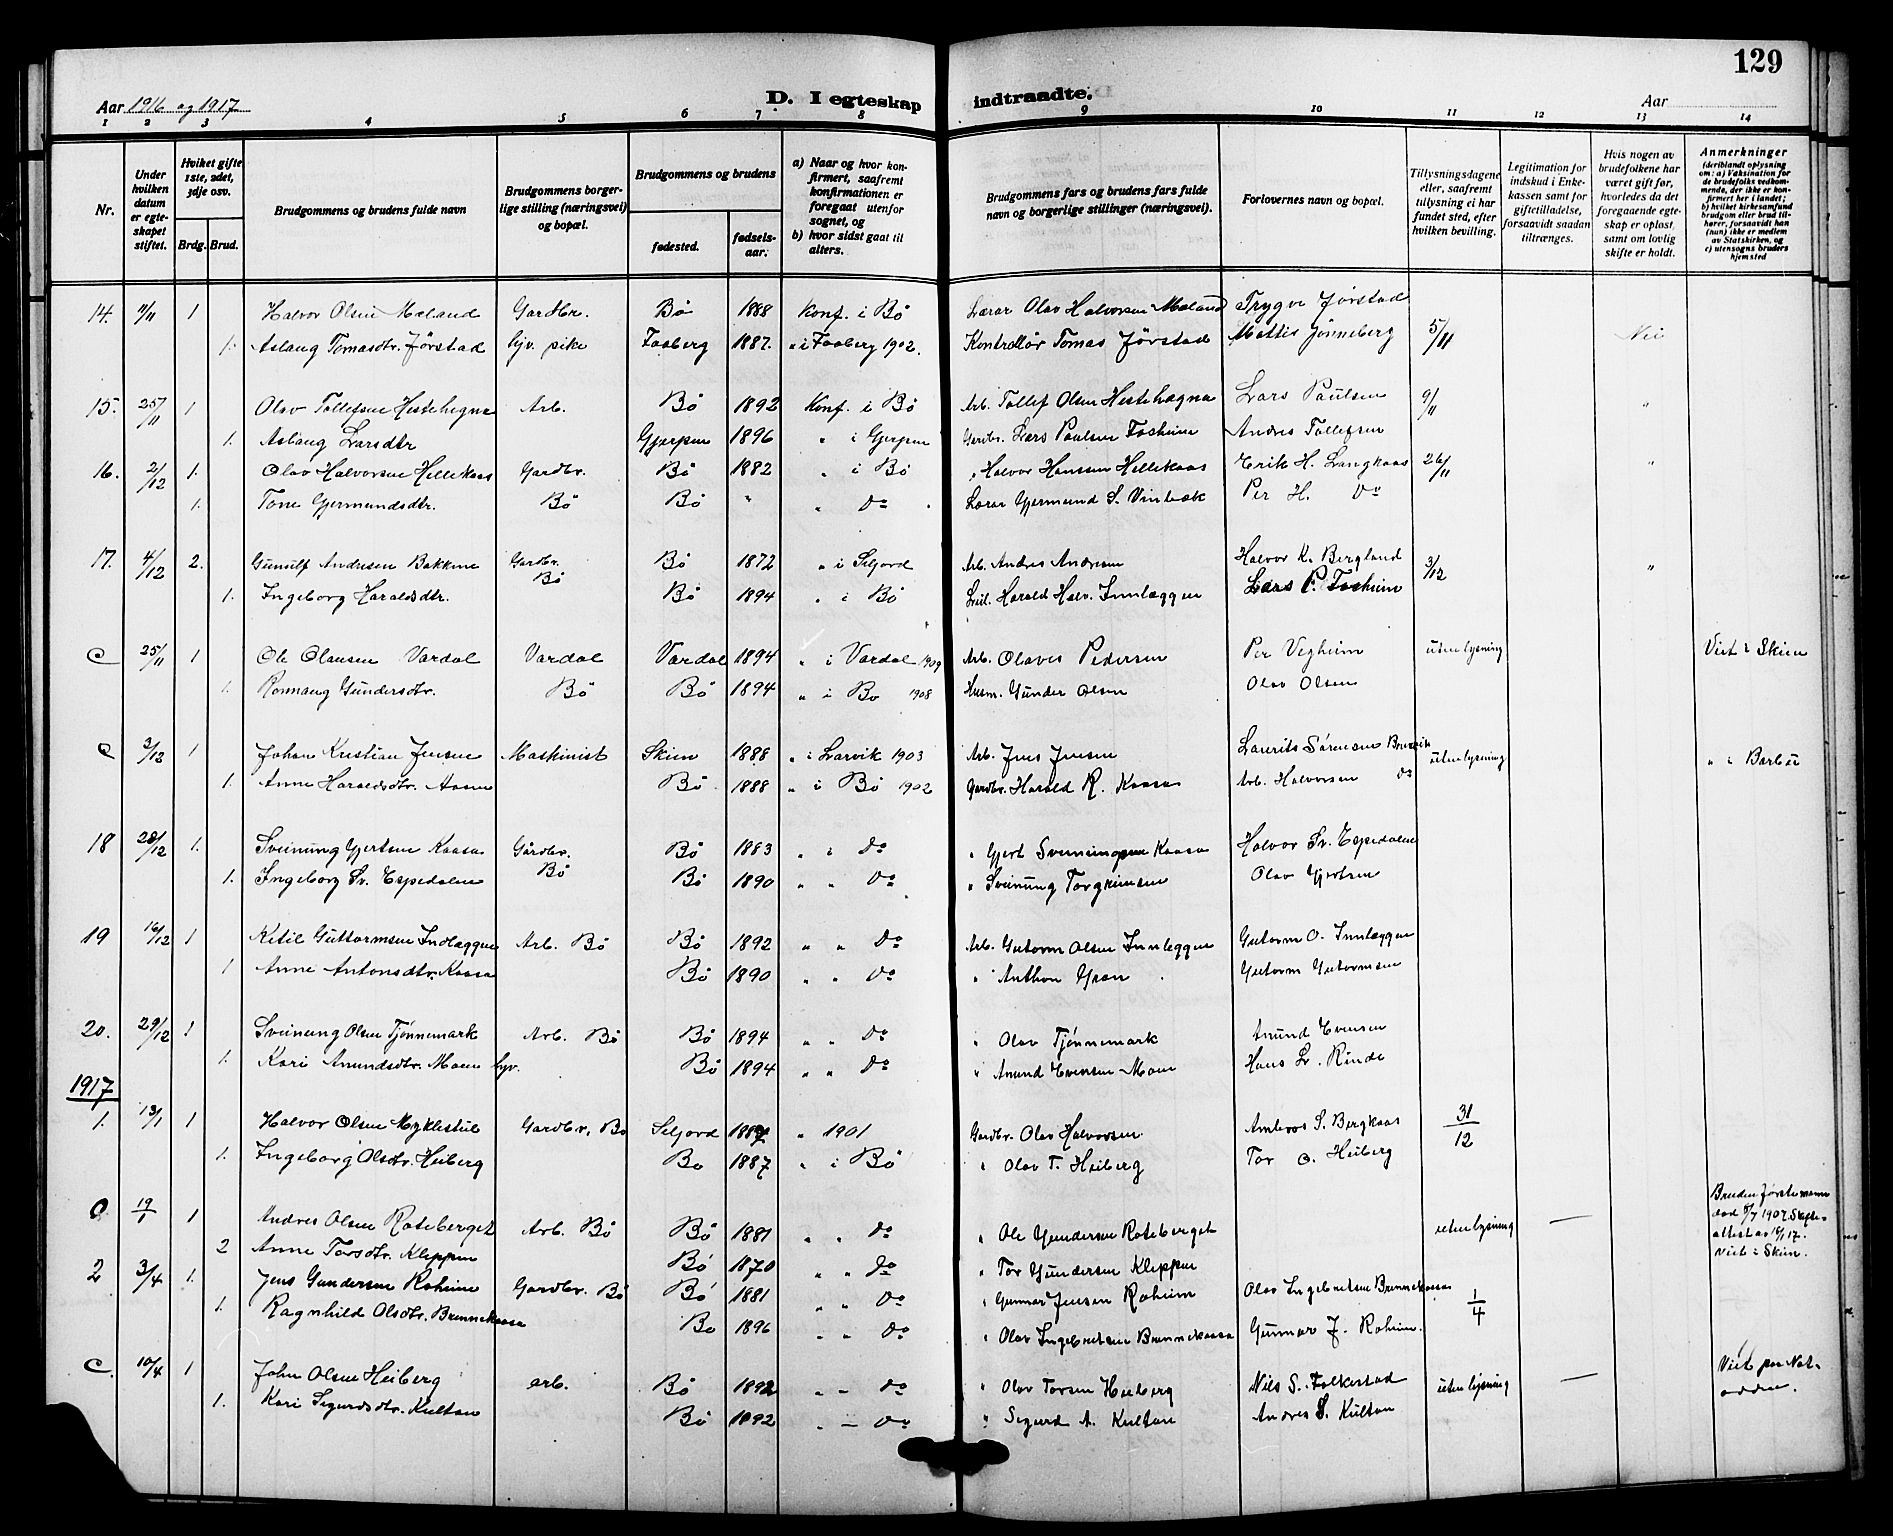 129
Aar 1916 og 1917 D. I egteskap indtraadte. Aar
1 2 3 4 5 6 7 8 9 10 11 12 13 14
Nr.
Under hvilken datum er egteskapet stiftet.
Hvilket gifte 1ste, 2det, 3dje osv.
Brdg. Brud.
Brudgommens og brudens fulde navn
Brudgommens borgerlige stilling (næringsvei) og bopæl.
Brudgommens og brudens
fødested. fødselsaar.
a) Naar og hvor konfirmert, saafremt konfirmationen er foregaat utenfor sognet, og
b) hvor sidst gaat til alters.
Brudgommens fars og brudens fars fulde navn og borgerlige stillinger (næringsvei).
Forlovernes navn og bopæl.
Tillysningsdagene eller, saafremt tillysning ei har fundet sted, efter hvilken bevilling.
Legitimation for indskud i Enkekassen samt for giftetilladelse, forsaavidt saadan tiltrænges.
Hvis nogen av brudefolkene har været gift før, hvorledes da det foregaaende egteskap er opløst, samt om lovlig skifte er holdt.
Anmerkninger (deriblandt oplysning om: a) Vaksination for de brudefolks vedkommende, der ikke er konfirmert her i landet; b) hvilket kirkesamfund brudgom eller brud tilhører, forsaavidt han (hun) ikke er medlem av Statskirken, og c) utensogns bruders hjemsted
14. 11/11 1 Halvor Olsen Mæland Gardbr. Bø 1888 Konf. i Bø Lærar Olav Halvorsen Mæland Trygve Jørstad 5/11 Nei
1. Aslaug Tomasdtr. Jørstad hjv. pike Faaberg 1887. " i Faaberg 1902. Kontrollør Tomas Jørstad Mattis Jønneberg
15. 25/11 1 Olav Tollefsen Hestehagna Arb. Bø 1892 Konf. i Bø Arb. Tollef Olsen Hestehagna Lars Paulsen 9/11 "
1. Aslaug Larsdtr Gjerpen 1896 " i Gjerpen Gardbr. Lars Paulsen Fosheim Andres Tollefsen
16. 2/12 1. Olav Halvorsen Hellekaas Gardbr. Bø 1882 " i Bø " Halvor Hansen Hellekaas Erik H. Langkaas 26/11 "
1. Tone Gjermundsdtr. Bø Bø " " Do Lærar Gjermund S. Vinbæk Per H. Do
17. 4/12 2. Gunulf Andresen Bakkene Gardbr. Bø Bø 1872 " i Seljord Arb. Andres Andresen Halvor K. Bergland 3/12 "
1. Ingeborg Haraldsdtr. Bø 1894 " i Bø Harald Halv. Innlæggen Lars P. Fosheim
C 25/11 1 Ole Olausen Vardal Vardal Vardal 1894 " i Vardal 1909 Arb. Olaves Pedersen Per Vegheim uten lysning Viet i Skien
1. Ronnaug Gundersdtr. Bø Bø 1894 " i Bø 1908 Husm. Gunder Olsen Olav Olsen
C 3/12 1 Johan Kristian Jensen Maskinist Skien 1888 " i Larvik 1903 Arb. Jens Jensen Laurits Sørensen uten lysning " i Barbu
1. Anne Haraldsdtr. Aasen Bø 1888 " i Bø 1902 Gardbr. Harald R. Kaasa Arb. Halvorsen Do
18 28/12 1. Sveinung Gjertsen Kaasa Gårdbr. Bø Bø 1883 " i Do " Gjert Sveinungsen Kaasa Halvor Sv. Espedalen
1. Ingeborg Sv. Espedalen Bø 1890 " " Do " Sveinung Torgrimsen Olav Gjertsen
19 16/12 1 Ketil Guttormsen Indlæggen Arb. Bø Bø 1892 " " Do Arb. Gutorm Olsen Innleggen Gutorm O. Innlæggen
1 Anne Antonsdtr. Kaasa Bø 1890 " " Do " Anthon Gran Gutorm Gutormsen
20. 29/12 1 Sveinung Olsen Tjønnemark Arb. Bø Bø 1894 " " Do " Olav Tjønnemark Anund Evensen
1. Kari Anundsdtr. Moen hjv. Bø 1894 " " Do " Anund Evensen Moen Hans L. Rinde
1917
1. 13/1 1 Halvor Olsen Myklestul Gardbr. Bø Seljord " 1901 Gardbr. Olav Halvorsen Ambros S. Bergkaas 31/12
1. Ingeborg Olsdtr. Heiberg Bø 1887 " i Bø " Olav T. Heiberg Tor O. Heiberg
C 19/1 1 Andres Olsen Roteberget Arb. Bø Bø 1881 " " Do " Ole Gundersen Roteberget uten lysning — Bruden første mann død 5/7 1907. Skifteattest av 15/1 17. Viet i Skien.
2 Anne Torsdtr. Kleppen Bø 1870 " " Do " Tor Gundersen Kleppen
2 3/4 1. Jens Gundersen Roheim Gardbr. Bø Bø 1881 " " Do " Gunnar Jensen Roheim Olav Ingebretsen Brennekaasa 1/4
1. Ragnhild Olsdtr. Brennekaasa Bø 1896 " " Do " Olav Ingebretsen Brennekaasa Gunnar J. Roheim.
C. 10/4 1 John Olsen Heiberg arb. Bø 1892 " – Do " Olav Torsen Heiberg Nils S. Folkestad uten lysning — Viet paa Notodden.
1. Kari Sigurdsdtr. Kultan Bø 1892 " – Do " Sigurd A. Kultan Andres S. Kultan